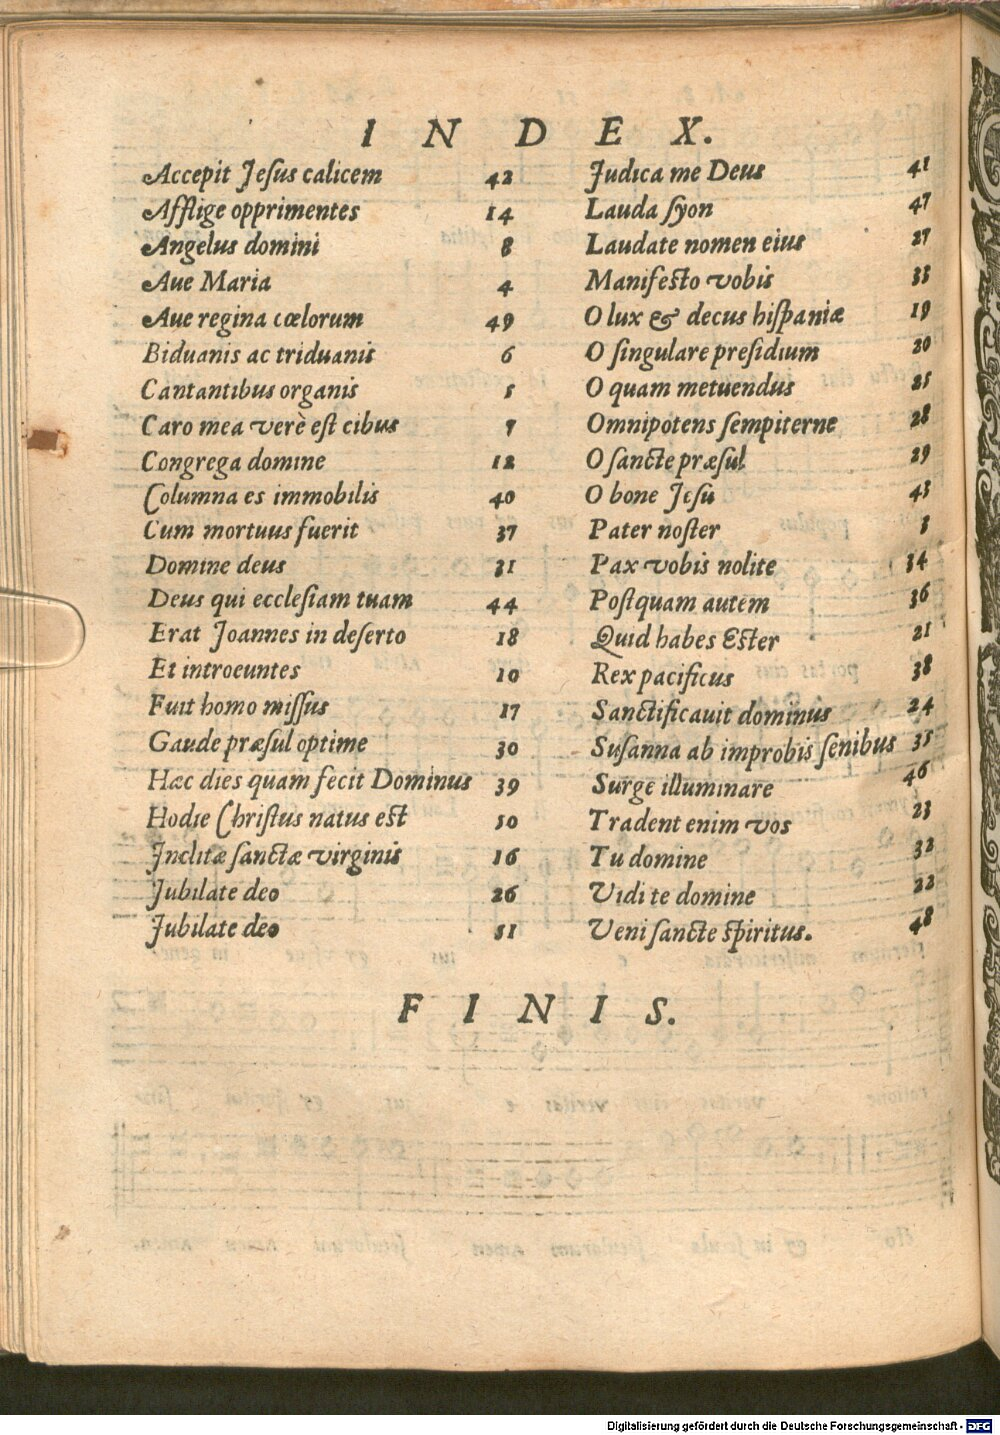 INDEX.
Accepit Jeſus calicem 42
Afflige opprimentes 14
Angelus domini 8
Aue Maria 4
Aue regina cœlorum 49
Biduanis ac triduanis 6
Cantantibus organis 5
Caro mea verè eſt cibus 7
Congrega domine 12
Columna es immobilis 40
Cum mortuus fuerit 37
Domine deus 31
Deus qui eccleſiam tuam 44
Erat Joannes in deſerto 18
Et introeuntes 10
Fuit homo miſſus 17
Gaude præſul optime 30
Hæc dies quam fecit Dominus 39
Hodie Chriſtus natus eſt 50
Jnclitæ ſanctæ virginis 16
Jubilate deo 26
Jubilate deo 51
Judica me Deus 41
Lauda ſyon 47
Laudate nomen eius 27
Manifeſto vobis 33
O lux & decus hiſpaniæ 19
O ſingulare preſidium 20
O quam metuendus 25
Omnipotens ſempiterne 28
O ſancte præſul 29
O bone Jeſu 43
Pater noſter 3
Pax vobis nolite 34
Poſtquam autem 36
Quid habes Eſter 21
Rex pacificus 38
Sanctificauit dominus 24
Suſanna ab improbis ſenibus 35
Surge illuminare 46
Tradent enim vos 23
Tu domine 32
Vidi te domine 22
Veni ſancte ſpiritus. 48
FINIS.
Digitalisierung gefördert durch die Deutsche Forschungsgemeinschaft - DFG